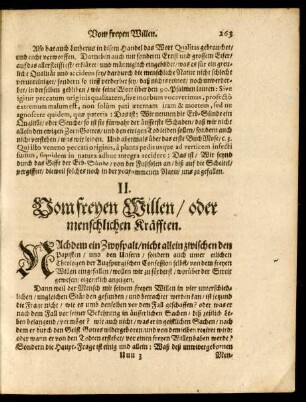 Vom freyen Willen. 263
Also hat auch Lutherus in disem Handel das Wort Qualitas gebrauchet/
und nicht verworffen. Darneben auch mit sonderm Ernst und grossem Eifer/
auf das allerfleissigst/ erkläret/ und männiglich eingebildet/ was es für ein greu-
liche Qualität und accidens sey/ dardurch die menschliche Natur nicht schlecht
verunreiniget/ sondern so tieff verderbet sey/ daß nichts reines/ noch unverderb-
tes/ in derselben gebliben/ wie seine Wort über den 90. Psalmen lauten: Sive
igitur peccatum originis qualitatem, sive morbum vocaverimus, profectò
extremum malum est, non solùm pati aeternam iram & mortem, sed ne
agnoscere quidem, quae pateris: Das ist: Wir nennen die Erb-Sünde ein
Qualität/ oder Seuche/ so ist sie fürwahr der äusserste Schaden/ daß wir nicht
allein den ewigen Zorn Gottes/ und den ewigen Tod leiden sollen/ sondern auch
nicht verstehen/ was wir leiden. Und abermals über das erste Buch Mose c. 3.
Qui isto veneno peccati originis, à planta pedis usque ad verticem infecti
sumus, siquidem in natura adhuc integra accidere: Das ist/ Wir seynd
durch das Gifft der Erb-Sünde/ von der Fußsolen an/ biß auf die Scheitel/
vergifftet/ dieweil solches noch in der vollkommenen Natur uns zugefallen.
II.
Vom freyen Willen/ oder
menschlichen Kräfften.
NAchdem ein Zwyspalt/ nicht allein zwischen den
Papisten/ und den Unsern/ sondern auch unter etlichen
Theologen der Augspurgischen Confession selbst/ von dem freyen
Willen eingefallen/ wollen wir zuförderst/ worüber der Streit
gewesen/ eigentlich anzeigen.
Dann weil der Mensch mit seinem freyen Willen in vier unterschied-
lichen/ ungleichen Ständen gefunden/ und betrachtet werden kan/ ist jetzund
die Frag nicht/ wie es umb denselben vor dem Fall geschaffen/ oder was er
nach dem Fall vor seiner Bekehrung in äusserlichen Sachen/ diß zeitlich Le-
ben belangend/ vermöge? wie auch nicht/ was er in geistlichen Sachen/ nach
dem er durch den Geist Gottes widergeboren/ und von dem selben regiert wird:
oder wann er von den Todten erstehet/ vor einen freyen Willen haben werde?
Sondern die Haupt-Frage ist einig und allein: Waß deß unwidergebornen
Uuu 3 Men-